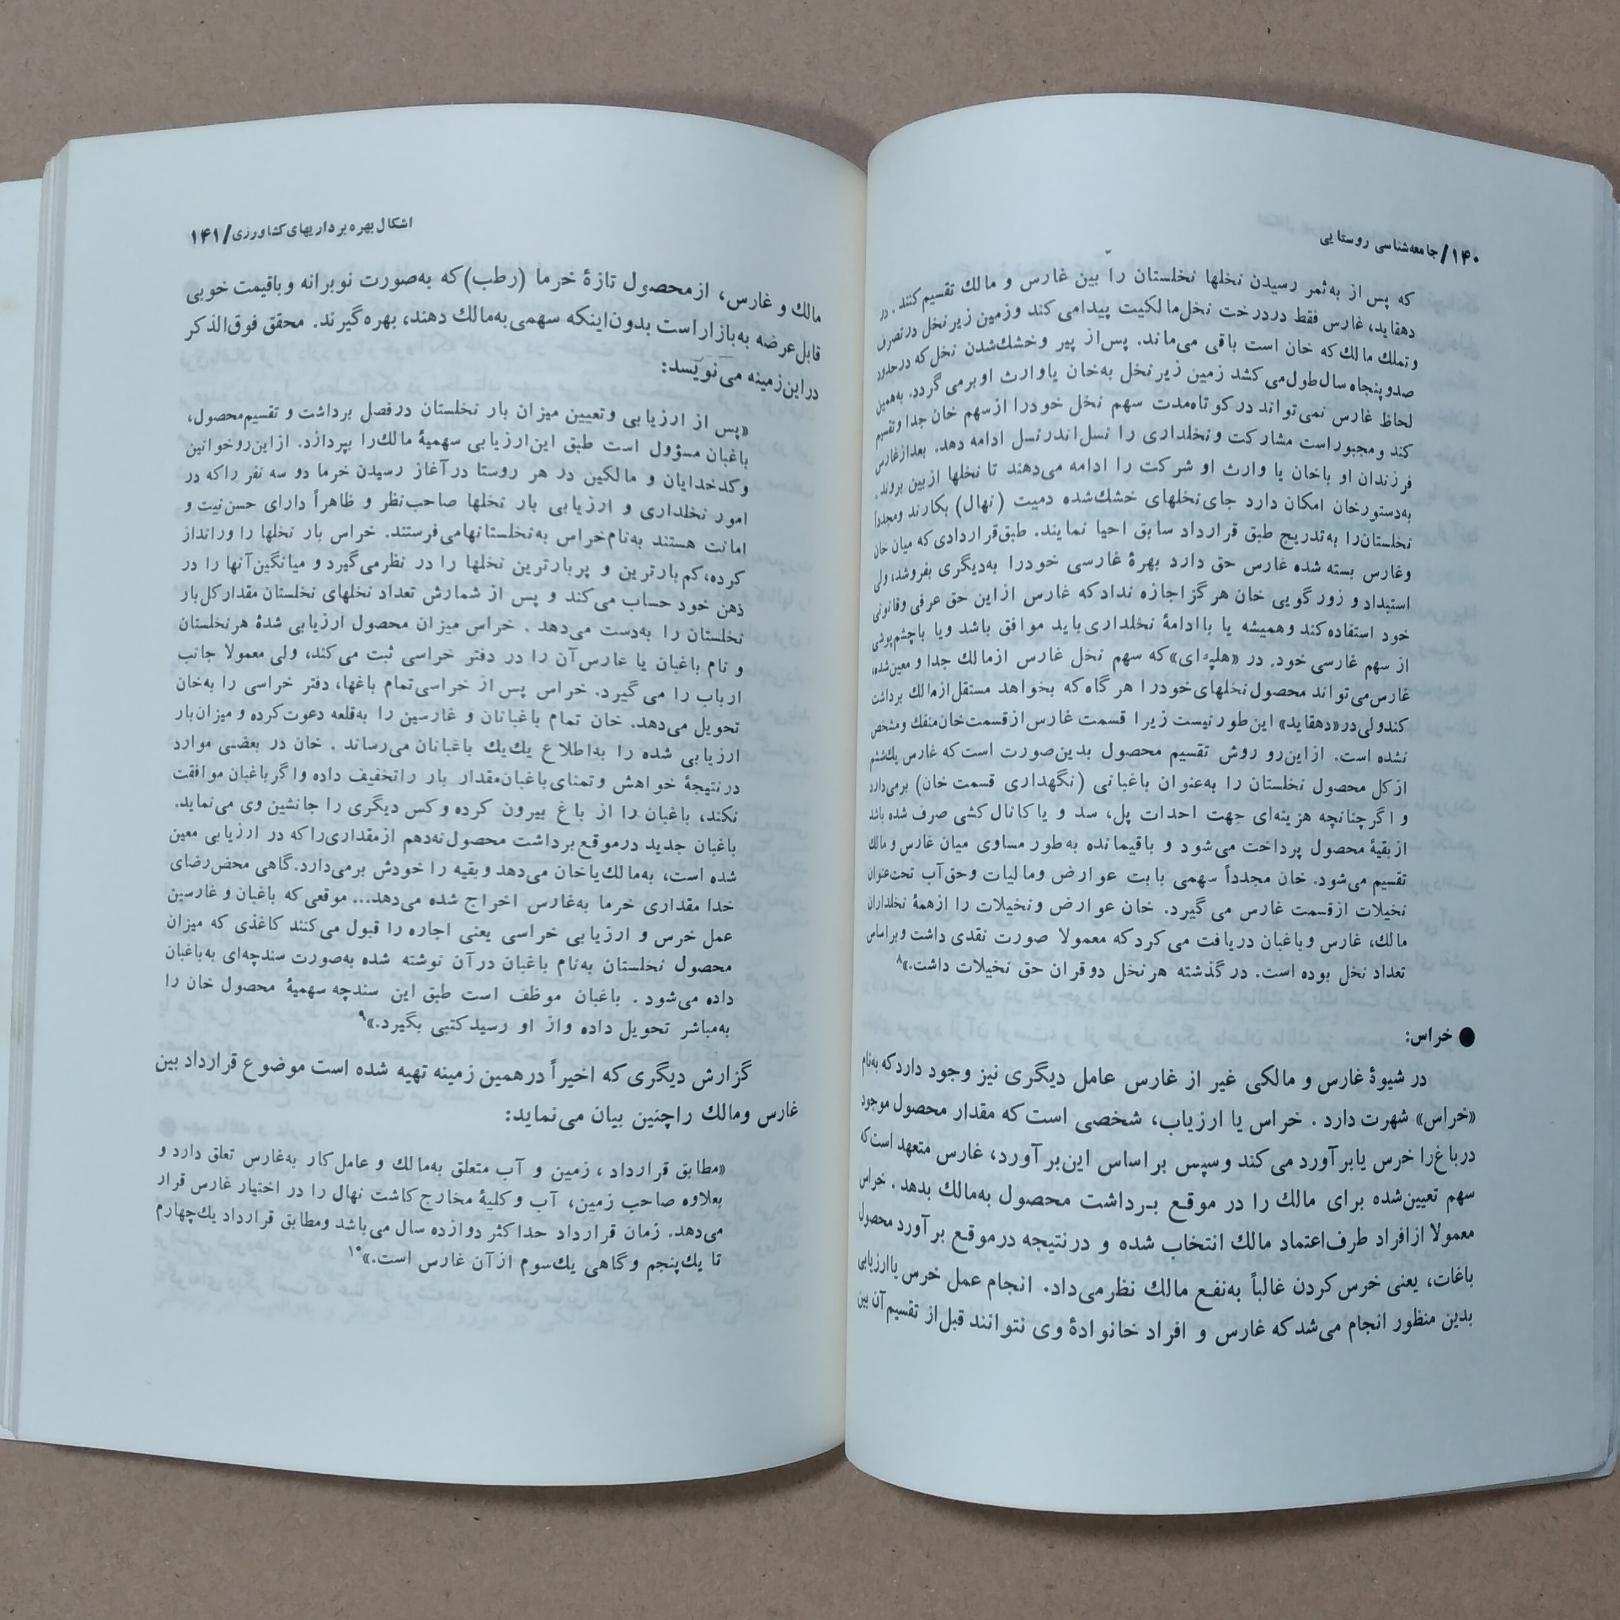 ۱۴۰/جامعه‌شناسی روستایی
که پس از به‌ثمر رسیدن نخلها نخلستان را بین غارس و مالك تقسیم کنند. در
دهقاید، غارس فقط دردرخت نخل‌مالکیت پیدامی کند وزمین زیرنخل درتصرف
وتملك مالك‌که خان است باقی می‌ماند. پس‌از پیر وخشك‌شدن نخل که درحدود
صدوپنجاه سال‌طول‌می‌کشد زمین زیرنخل به‌خان یاوارث اوبرمی گردد. به‌همین
لحاظ غارس نمی‌تواند درکوتاه‌مدت سهم نخل خودرا ازسهم خان جدا وتقسیم
کند ومجبوراست مشارکت ونخلداری را نسل‌اندرنسل ادامه دهد. بعدازغارس
فرزندان او باخان یا وارث او شرکت را ادامه می‌دهند تا نخلها ازبین بروند.
به‌دستورخان امکان دارد جای‌نخلهای خشك‌شده دمیت (نهال) بکارند ومجدداً
نخلستان‌را به‌تدریج طبق قرارداد سابق احیا نمایند. طبق‌قراردادی که میان خان
وغارس بسته شده غارس حق دارد بهرۀ غارسی خودرا به‌دیگری بفروشد، ولی
استبداد و زورگویی خان هرگز اجازه نداد که غارس ازاین حق عرفی وقانونی
خود استفاده کند وهمیشه یا باادامۀ نخلداری باید موافق باشد ویا باچشم‌پوشی
از سهم غارسی خود. در «هلپه‌ای» که سهم نخل غارس ازمالك جدا و معین‌شده،
غارس‌می‌تواند محصول نخلهای‌خودرا هرگاه که بخواهد مستقل‌ازمالك برداشت
کندولی‌در«دهقاید» این‌طور نیست زیرا قسمت غارس‌ازقسمت‌خان‌منفك ومشخص
نشده است. ازاین‌رو روش تقسیم محصول بدین‌صورت است‌که غارس یك‌ششم
ازکل محصول نخلستان را به‌عنوان باغبانی (نگهداری قسمت خان) برمی‌دارد
و اگرچنانچه هزینه‌ای جهت احداث پل، سد و یاکانال کشی صرف شده باشد
ازبقیۀ محصول پرداخت می‌شود و باقیمانده به‌طور مساوی میان غارس ومالك
تقسیم می‌شود. خان مجدداً سهمی بابت عوارض ومالیات وحق‌آب تحت‌عنوان
نخیلات ازقسمت غارس می گیرد. خان عوارض ونخیلات را ازهمۀ نخلداران
مالك، غارس وباغبان دریافت می‌کرد که معمولا صورت نقدی داشت وبراساس
تعداد نخل بوده است. در گذشته هرنخل دوقران حق نخیلات داشت.»۸
● خراس:
در شیوۀ غارس و مالکی غیر از غارس عامل دیگری نیز وجود دارد که به‌نام
«خراس» شهرت دارد. خراس یا ارزیاب، شخصی است‌که مقدار محصول موجود
درباغ‌را خرس یابرآورد می‌کند وسپس براساس این‌برآورد، غارس متعهد است‌که
سهم تعیین‌شده برای مالك را در موقع برداشت محصول به‌مالك بدهد. خراس
معمولا ازافراد طرف‌اعتماد مالك انتخاب شده و درنتیجه درموقع برآورد محصول
باغات، یعنی خرس‌کردن غالباً به‌نفع مالك نظرمی‌داد. انجام عمل خرس یاارزیابی
بدین منظور انجام می‌شد که غارس و افراد خانوادۀ وی نتوانند قبل‌از تقسیم‌آن بین
اشکال بهره‌برداریهای کشاورزی/۱۴۱
مالك و غارس، ازمحصول تازۀ خرما (رطب)که به‌صورت نوبرانه وباقیمت خوبی
قابل‌عرضه به‌بازاراست بدون‌اینکه سهمی‌به‌مالك دهند، بهره‌گیرند. محقق فوق‌الذکر
دراین‌زمینه می‌نویسد:
«پس از ارزیابی وتعیین میزان بار نخلستان درفصل برداشت و تقسیم‌محصول،
باغبان مسؤول است طبق این‌ارزیابی سهمیۀ مالك‌را بپردازد. ازاین‌روخوانین
وکدخدایان و مالکین در هر روستا درآغاز رسیدن خرما دو سه نفر راکه در
امور نخلداری و ارزیابی بار نخلها صاحب‌نظر و ظاهراً دارای حسن‌نیت و
امانت هستند به‌نام‌خراس به‌نخلستانهامی‌فرستند. خراس بار نخلها را ورانداز
کرده، کم‌بارترین و پربارترین نخلها را در نظرمی‌گیرد و میانگین‌آنها را در
ذهن خود حساب می‌کند و پس از شمارش تعداد نخلهای نخلستان مقدارکل‌بار
نخلستان را به‌دست می‌دهد. خراس میزان محصول ارزیابی شدۀ هرنخلستان
و نام باغبان یا غارس‌آن را در دفتر خراسی ثبت می‌کند، ولی معمولا جانب
ارباب را می گیرد. خراس پس ازخراسی‌تمام باغها، دفتر خراسی را به‌خان
تحویل می‌دهد. خان تمام باغبانان و غارسین را به‌قلعه دعوت‌کرده و میزان‌بار
ارزیابی شده را به‌اطلاع یك‌یك باغبانان می‌رساند. خان در بعضی موارد
درنتیجۀ خواهش وتمنای‌باغبان‌مقدار بار راتخفیف داده واگرباغبان موافقت
نکند، باغبان را از باغ بیرون کرده وکس دیگری را جانشین وی می‌نماید.
باغبان جدید درموقع برداشت محصول‌نه‌دهم ازمقداری‌راکه در ارزیابی معین
شده است، به‌مالك‌یاخان می‌دهد وبقیه را خودش برمی‌دارد.گاهی محض‌رضای
خدا مقداری خرما به‌غارس اخراج شده می‌دهد... موقعی‌که باغبان و غارسین
عمل خرس و ارزیابی خراسی یعنی اجاره را قبول می‌کنند کاغذی که میزان
محصول نخلستان به‌نام باغبان درآن نوشته شده به‌صورت سندچه‌ای به‌باغبان
داده می‌شود. باغبان موظف است طبق این سندچه سهمیۀ محصول خان را
به‌مباشر تحویل داده واز او رسیدکتبی بگیرد.»۹
گزارش دیگری که اخیراً درهمین زمینه تهیه شده است موضوع قرارداد بین
غارس ومالك راچنین بیان می‌نماید:
«مطابق قرارداد، زمین و آب متعلق به‌مالك و عامل‌کار به‌غارس تعلق دارد و
بعلاوه صاحب زمین، آب وکلیۀ مخارج‌کاشت نهال را در اختیار غارس قرار
می‌دهد. زمان قرارداد حداکثر دوازده سال می‌باشد ومطابق قرارداد یك‌چهارم
تا یك‌پنجم وگاهی یك‌سوم ازآن غارس است.»۱۰